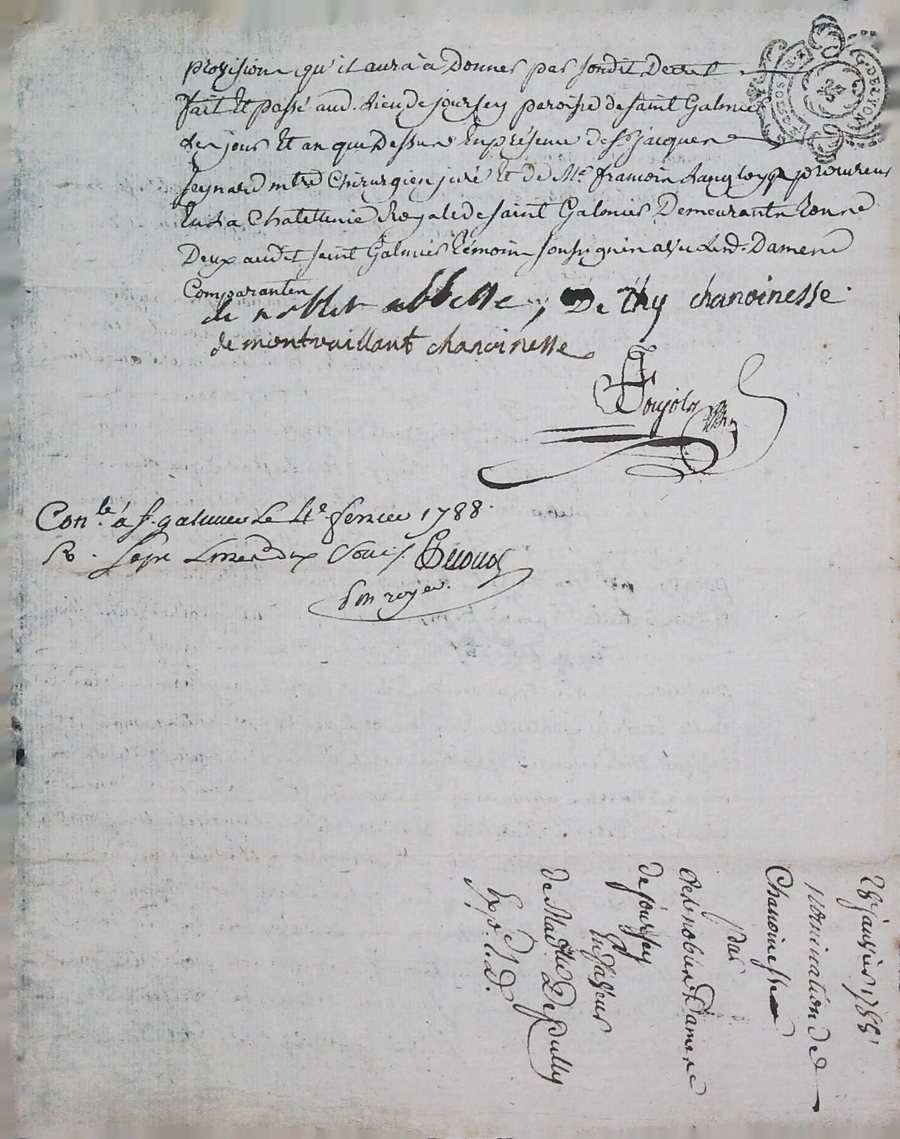 provision qu'il aura à Donner par sondit Decret
fait Et passé aud. Lieu de jourssey paroisse de saint Galmier
Les jour Et an que Dessus En présence de Sr jacques
peynard mtre Chirurgien juré Et de Me françois procureur
En La Chatellenie Royale de saint Galmier Demeurants tous
Deux audit saint Galmier témoins soussignés avec Lesd. Dames
Comparantes
de abbesse, De thy chanoinesse
de montvaillant chanoinesse
Poujols
Conlé à st. galmier Le 4e. fevrier 1788.
R. sept Livres dix sous
28 janvier 1788
nomination de
Chanoinesse
par
Les nobles Dames
de jourssey
En faveur
de Madlle De pully
Expo. S. D.